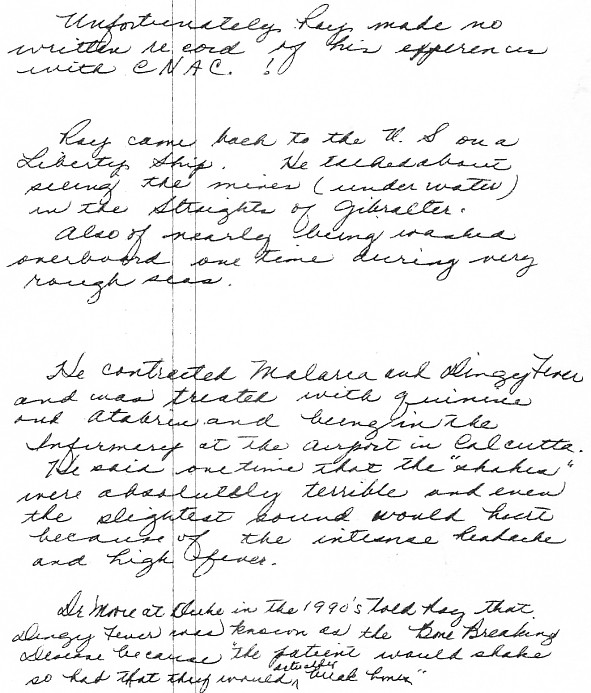 Unfortunately Ray made no
written record of his experences
with CNAC. !
Ray came back to the U.S on a
Liberty Ship. He talked about
seeing the mines (under water)
in the Straights of Gibralter.
Also of nearly being washed
overboard one time during very
rough seas.
He contracted Malaria and Dingy Fever
and was treated with quinine
and Atabrin and being in the
Infirmery at the airport in Calcutta.
He said one time that the "shakes"
were absolutely terrible and even
the slightest sound would hurt
because of the intense headache
and high fever.
Dr More at Duke in the 1990's told Ray that
Dingy Fever was known as the Bone Breaking
Disease because "the patient would shake
so bad that they would actually break bones"